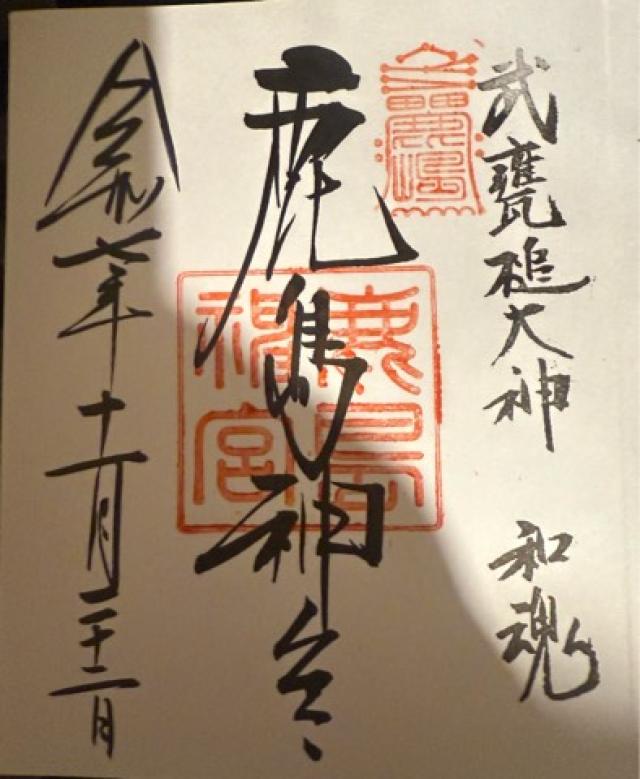 武甕槌大神 和魂
鹿島神宮
鹿島神宮
令和七年十一月二十二日